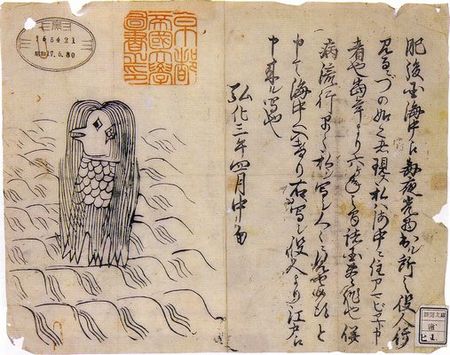 肥後国海中え毎夜光物出ル所之役人行
見るニづの如く者現ス私ハ海中ニ住アマビヱト申
者也当年より六ヶ年之間諸国豊作也併
病流行早々私ヲ写シ人々ニ見セ候得ト
申て海中へ入けり右ハ写シ役人より江戸え
申来ル写也
弘化三年四月中旬
京都
帝國大學
圖書之印